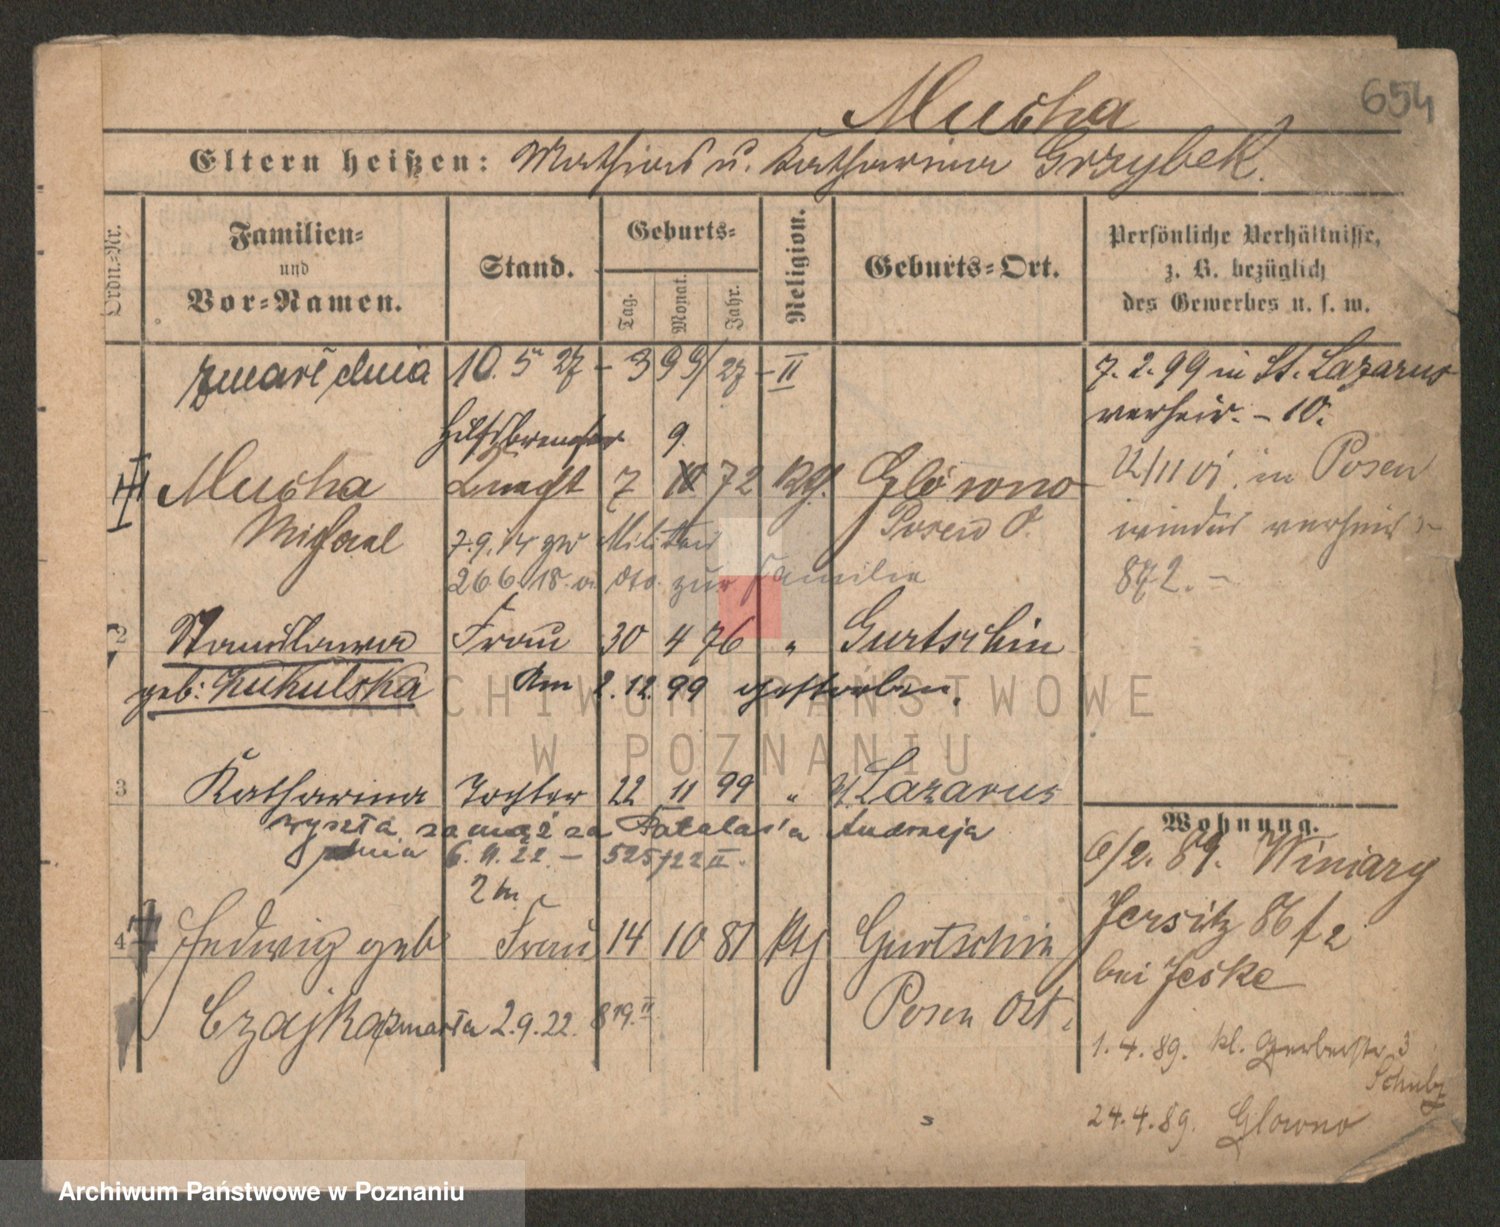 654
Mucha
Eltern heißen: Mathias u. Katharina Grzybek.
Ordn.-Nr.
Familien- und Vor-Namen.
Stand.
Geburts-
Tag. Monat. Jahr.
Religion.
Geburts-Ort.
Persönliche Verhältnisse, z. B. bezüglich des Gewerbes u. s. w.
zmarł dnia 10. 5 27 - 399/27 - II
7. 2. 99 in St. Lazarus
verheir. - 10.
Hilfsbremser 9
Mucha Knecht 7 10 72 Kth. Glówno
Michael Posen O.
7.9.14 zum Militär
26 6. 18. v. dto. zur Familie
11/11 01. in Posen
wieder verheir
872. -
2 Stanislawa Frau 30 4 76 " Gurtschin
geb: Kukulska Am 2.12.99 gestorben.
3 Katharina Tochter 22 11 99 " St. Lazarus
wyszła za mąż za Andrzeja
dnia 6. 9. 22 - 525/22 II.
2 tn
4 Hedwig geb Frau 14 10 81 kth Gurtschin
Czajka zmarła 2.9.22. 819.II Posen Ost.
Wohnung.
6/2. 89. Winiary
Jersitz 86 f 2
bei Jeske
1. 4. 89. kl. Gerberstr. 3
Schulz
24. 4. 89. Glowno
ARCHIWUM PAŃSTWOWE
W POZNANIU
Archiwum Państwowe w Poznaniu